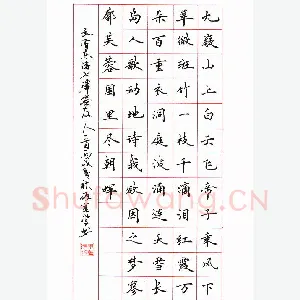 九嶷山上白云飞帝子乘风下
翠微斑竹一枝千滴泪红霞万
朵百重衣洞庭波涌连天雪长
岛人歌动地诗我欲因之梦寥
廓芙蓉国里尽朝晖
七律答友人一首
Shufawang.CN